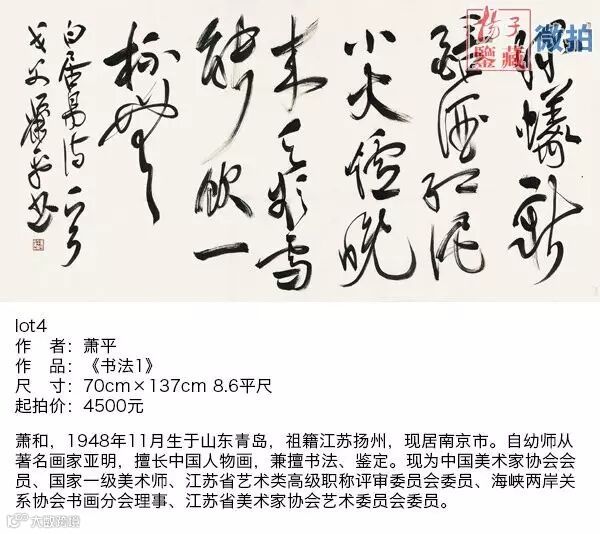 揚子
鑒藏
微拍
绿蟻新
醅酒红泥
小火爐晚
来天欲雪
能饮一
杯無
白居易诗一首
戈父萧平书
lot4
作 者：萧平
作 品：《书法1》
尺 寸：70cm×137cm 8.6平尺
起拍价：4500元
萧和，1948年11月生于山东青岛，祖籍江苏扬州，现居南京市。自幼师从
著名画家亚明，擅长中国人物画，兼擅书法、鉴定。现为中国美术家协会会
员、国家一级美术师、江苏省艺术类高级职称评审委员会委员、海峡两岸关
系协会书画分会理事、江苏省美术家协会艺术委员会委员。
大欧跨境